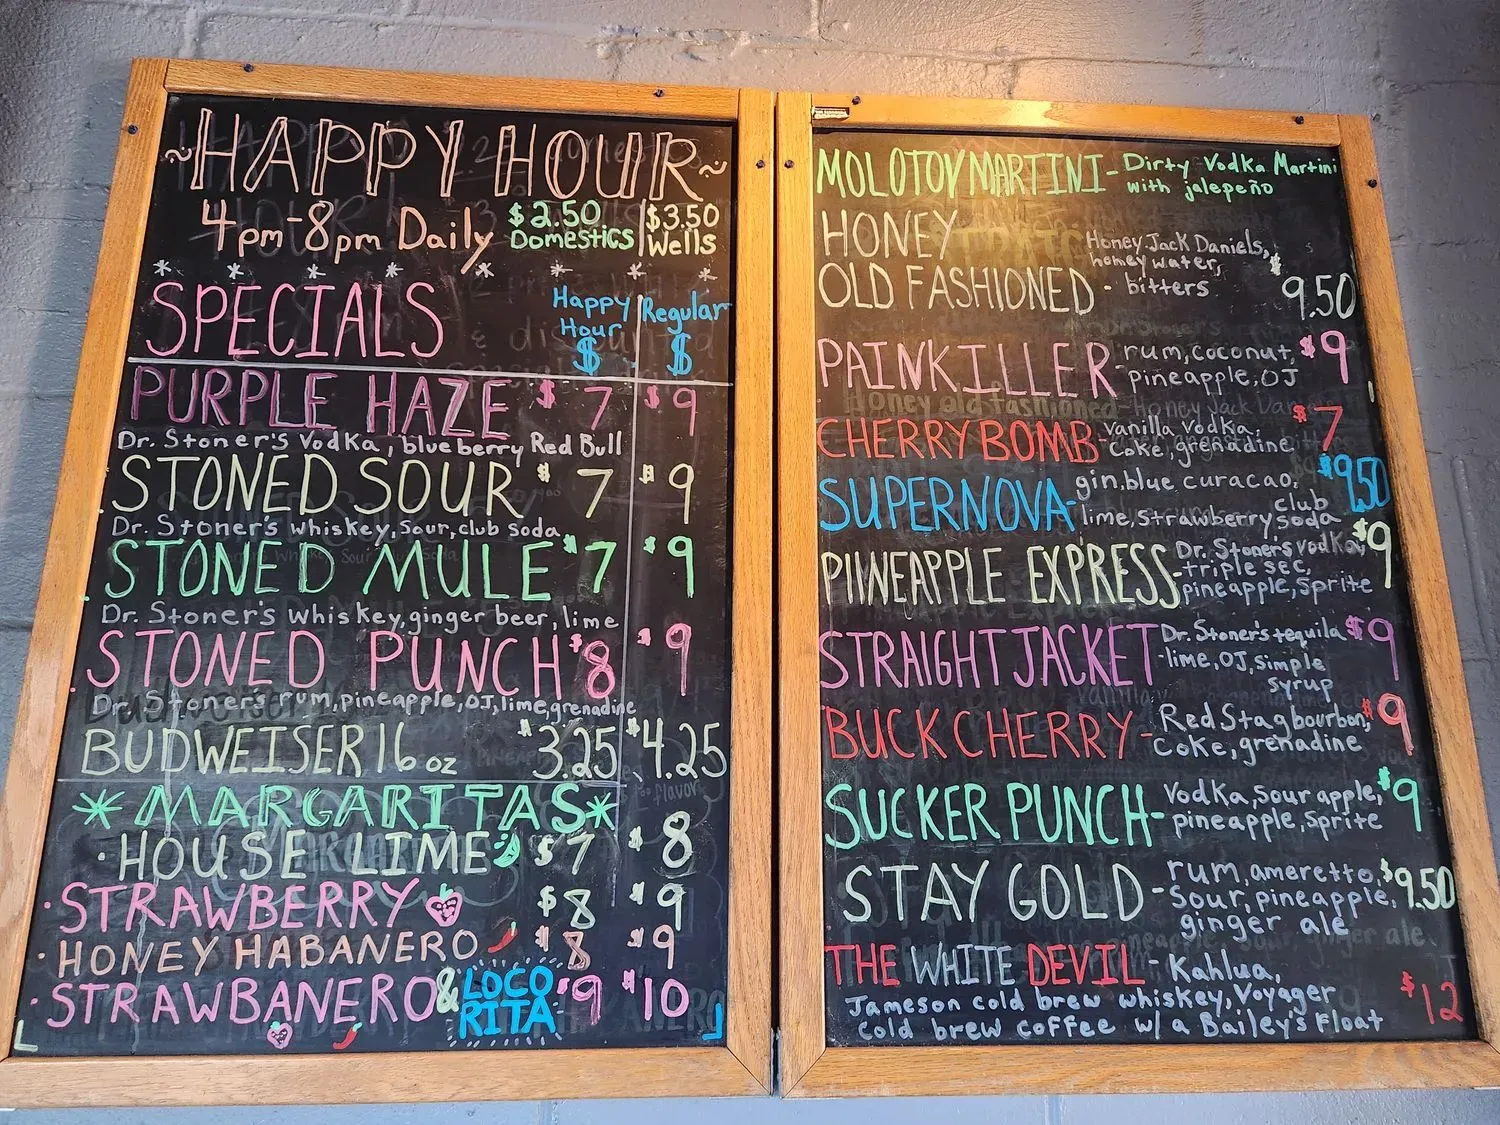 ~HAPPY HOUR~
4pm-8pm Daily $2.50 Domestics | $3.50 Wells
* * * * * * * *
SPECIALS Happy Hour $ | Regular $
PURPLE HAZE $7 $9
Dr. Stoner's Vodka, blueberry Red Bull
STONED SOUR $7 $9
Dr. Stoner's whiskey, sour, club soda
STONED MULE $7 $9
Dr. Stoner's whiskey, ginger beer, lime
STONED PUNCH $8 $9
Dr. Stoner's rum, pineapple, OJ, lime, grenadine
BUDWEISER 16 oz $3.25 $4.25
*MARGARITAS*
· HOUSE LIME $7 $8
· STRAWBERRY $8 $9
· HONEY HABANERO $8 $9
· STRAWBANERO & LOCO RITA $9 $10
MOLOTOV MARTINI - Dirty Vodka Martini
with jalepeño
HONEY
OLD FASHIONED - Honey Jack Daniels,
honey water,
bitters $9.50
PAINKILLER - rum, coconut,
pineapple, OJ $9
CHERRY BOMB - vanilla vodka,
coke, grenadine $7
SUPERNOVA - gin, blue curacao,
lime, strawberry, club soda $9.50
PINEAPPLE EXPRESS - Dr. Stoner's vodka,
triple sec,
pineapple, sprite $9
STRAIGHT JACKET - Dr. Stoner's tequila
lime, OJ, simple
syrup $9
BUCK CHERRY - Red Stag bourbon,
coke, grenadine $9
SUCKER PUNCH - Vodka, sour apple,
pineapple, sprite $9
STAY GOLD - rum, ameretto,
sour, pineapple,
ginger ale $9.50
THE WHITE DEVIL - Kahlua,
Jameson cold brew whiskey, Voyager
cold brew coffee w/ a Bailey's Float $12